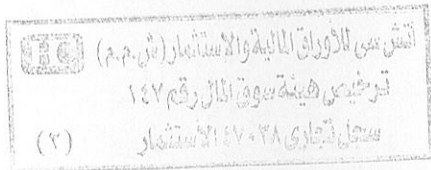 اتش سى للأوراق المالية والاستثمار (ش.م.م) HC
ترخيص هيئة سوق المال رقم ١٤٧
سجل تجارى ٤٧٠٣٨ الاستثمار
(٣)